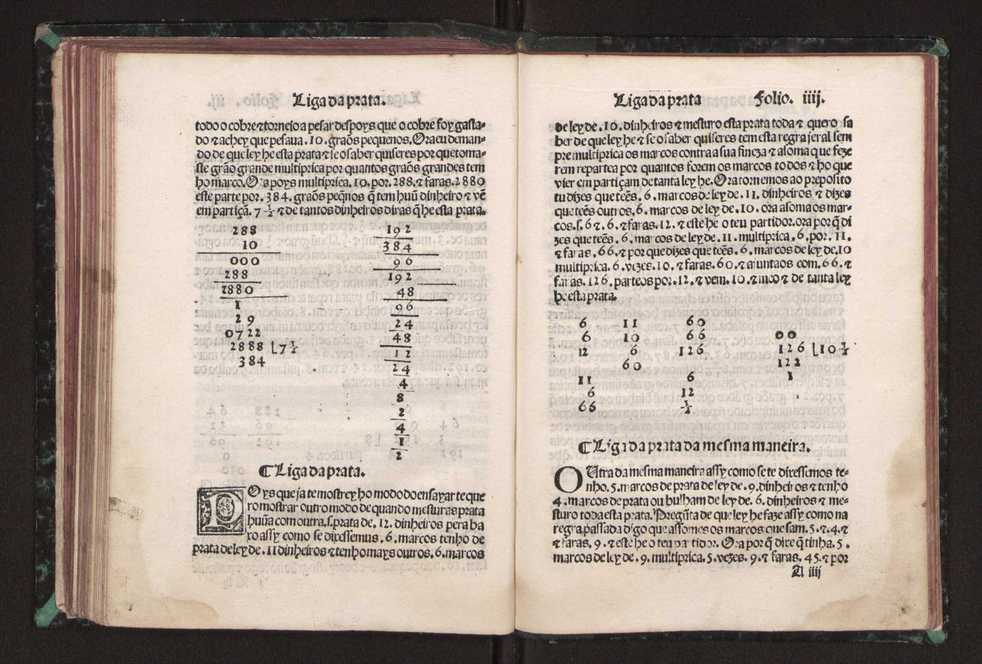 Liga da prata.
todo o cobre ⁊ torneio a pesar despoys que o cobre foy gasta-
do ⁊ achey que pesaua .10. graõs pequenos. Ora eu deman-
do de que ley he esta prata ⁊ se o saber quiseres por que toma-
ste graõ grande multiprica por quantos graõs grandes tem
ho marco. Ora poys multiprica .10. por .288. ⁊ faras .2880
este parte por .384. graõs peq̃nos q̃ tem huũ dinheiro ⁊ vẽ
em partiçã .7 ½ ⁊ de tantos dinheiros diras q̃ he esta prata.
288
10
000
288
2880
1
29
0722
2888 ⌊7 ½
384
192
384
96
192
48
96
24
48
12
24
4
8
2
4
1
2
¶ Liga da prata.
POys que ja te mostrey ho modo do ensayar te que
ro mostrar outro modo de quando mesturas prata
huũa com outra .s. prata de .12. dinheiros pera ba
ro assy como se dixessemus .6. marcos tenho de
prata de ley de .11 dinheiros ⁊ tenho mays outros .6. marcos
Liga da prata Folio. iiij.
de ley de .10. dinheiros ⁊ mesturo esta prata toda ⁊ quero sa
ber de que ley he ⁊ se o saber quiseres tem esta regra jeral sem
pre multiprica os marcos contra a sua fineza ⁊ a soma que feze
rem reparte a por quantos forem os marcos todos ⁊ ho que
vier em partiçam de tanta ley he. Ora tornemos ao preposito
tu dizes que teẽs .6. marcos de ley de .11. dinheiros ⁊ dizes
que teẽs outros .6. marcos de ley de .10. ora asoma os mar-
cos .s. 6 ⁊ .6. ⁊ faras .12. ⁊ este he o teu partidor. ora por q̃ di
zes que teẽs .6. marcos de ley de .11. multiprica .6. por .11.
⁊ faras .66. ⁊ por que dizes que teẽs .6. marcos de ley de .10
multiprica .6. vezes .10. ⁊ faras .60. ⁊ ajuntaos com .66. ⁊
faras .126. parteos por .12. ⁊ vem .10. ⁊ meo ⁊ de tanta ley
he esta prata.
6 11 60
6 10 66 00
12 6 126 126 ⌊10 ½
60 122
11 6 1
6 12
66 ½
¶ Liga da prata da mesma maneira.
OUtra da mesma maneira assy como se te dixessemos te-
nho .5. marcos de prata de ley de .9. dinheiros ⁊ tenho
4. marcos de prata ou bulham de ley de .6. dinheiros ⁊ me-
sturo toda esta prata. Pregũta de que ley he faze assy como na
regra passada digo que assomes os marcos que sam .5. ⁊ .4. ⁊
⁊ faras .9. ⁊ este he o teu partidor. Ora por q̃ dixe q̃ tinha .5.
marcos de ley de .9. multiprica .5. vezes .9. ⁊ faras .45. ⁊ por
A iiij